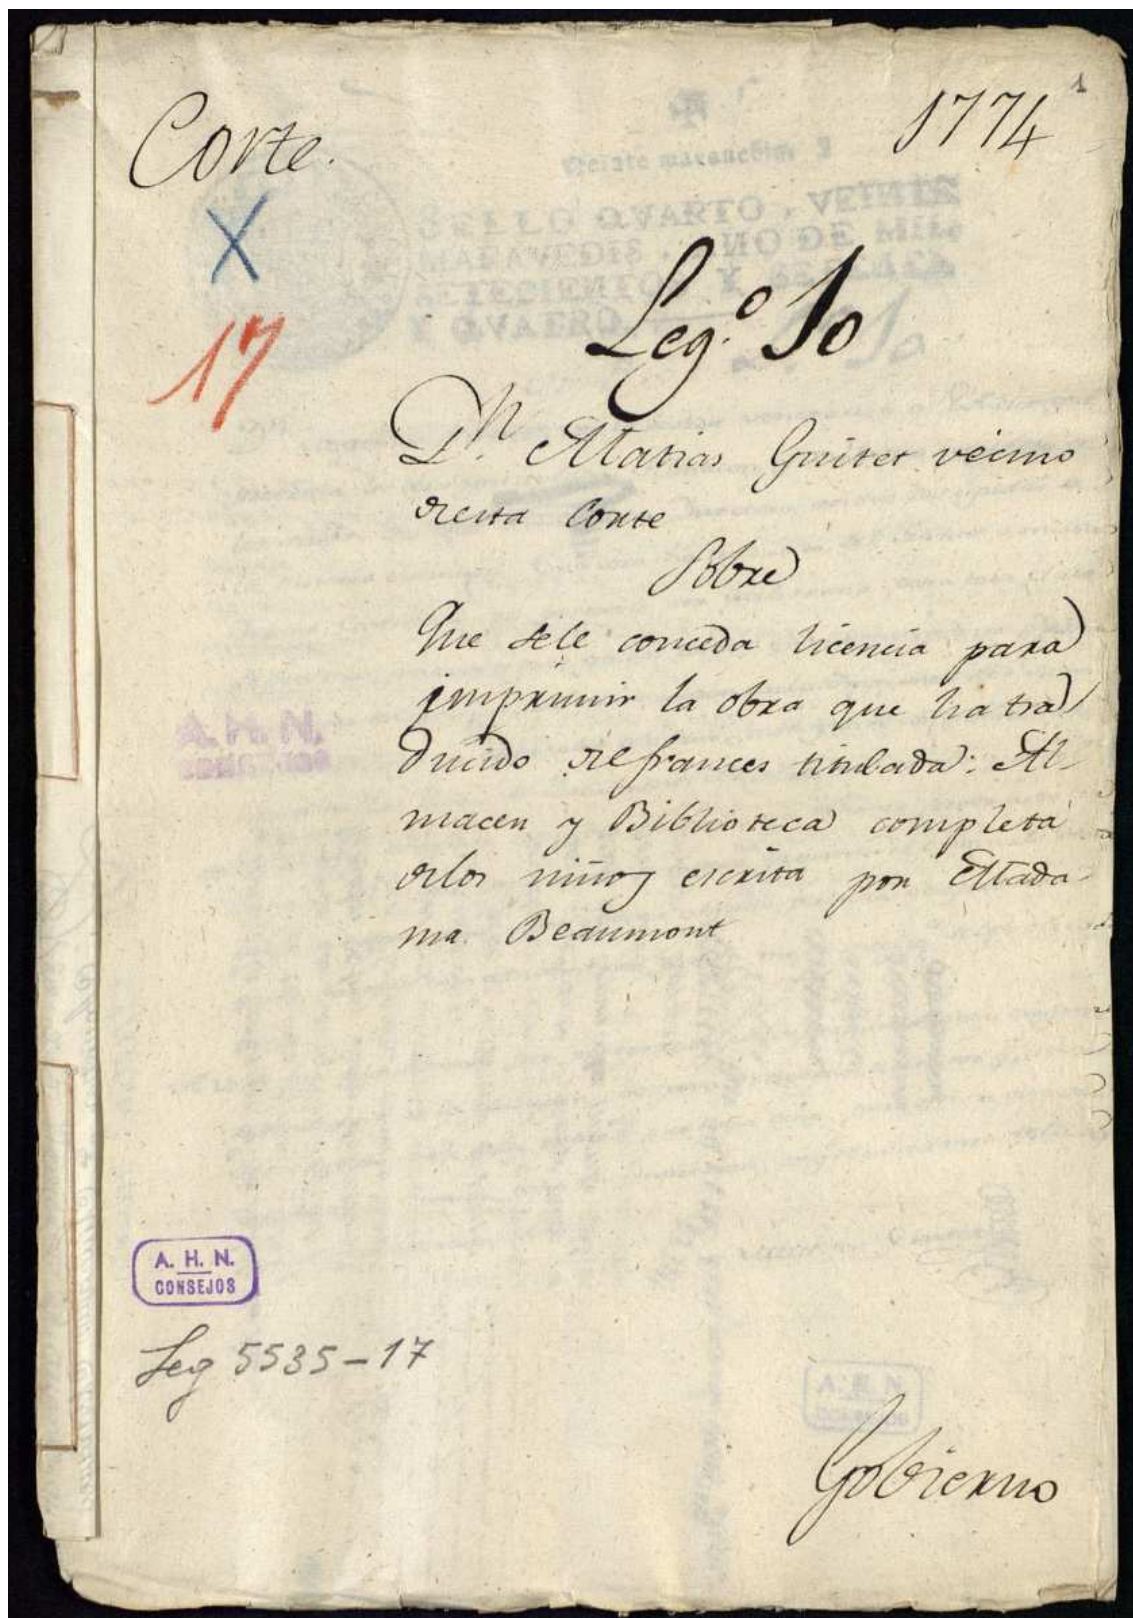 1
Corte.
1774
X
17
Leg.º 10
Dn. Matias Guitet vecino
desta Corte
Sobre
Que sele conceda licencia para
imprimir la obra que ha tra
ducido del frances titulada: Al-
macen y Biblioteca completa
delos niños escrita por Mada-
ma Beaumont
A. H. N.
CONSEJOS
Leg 5535-17
Gobierno